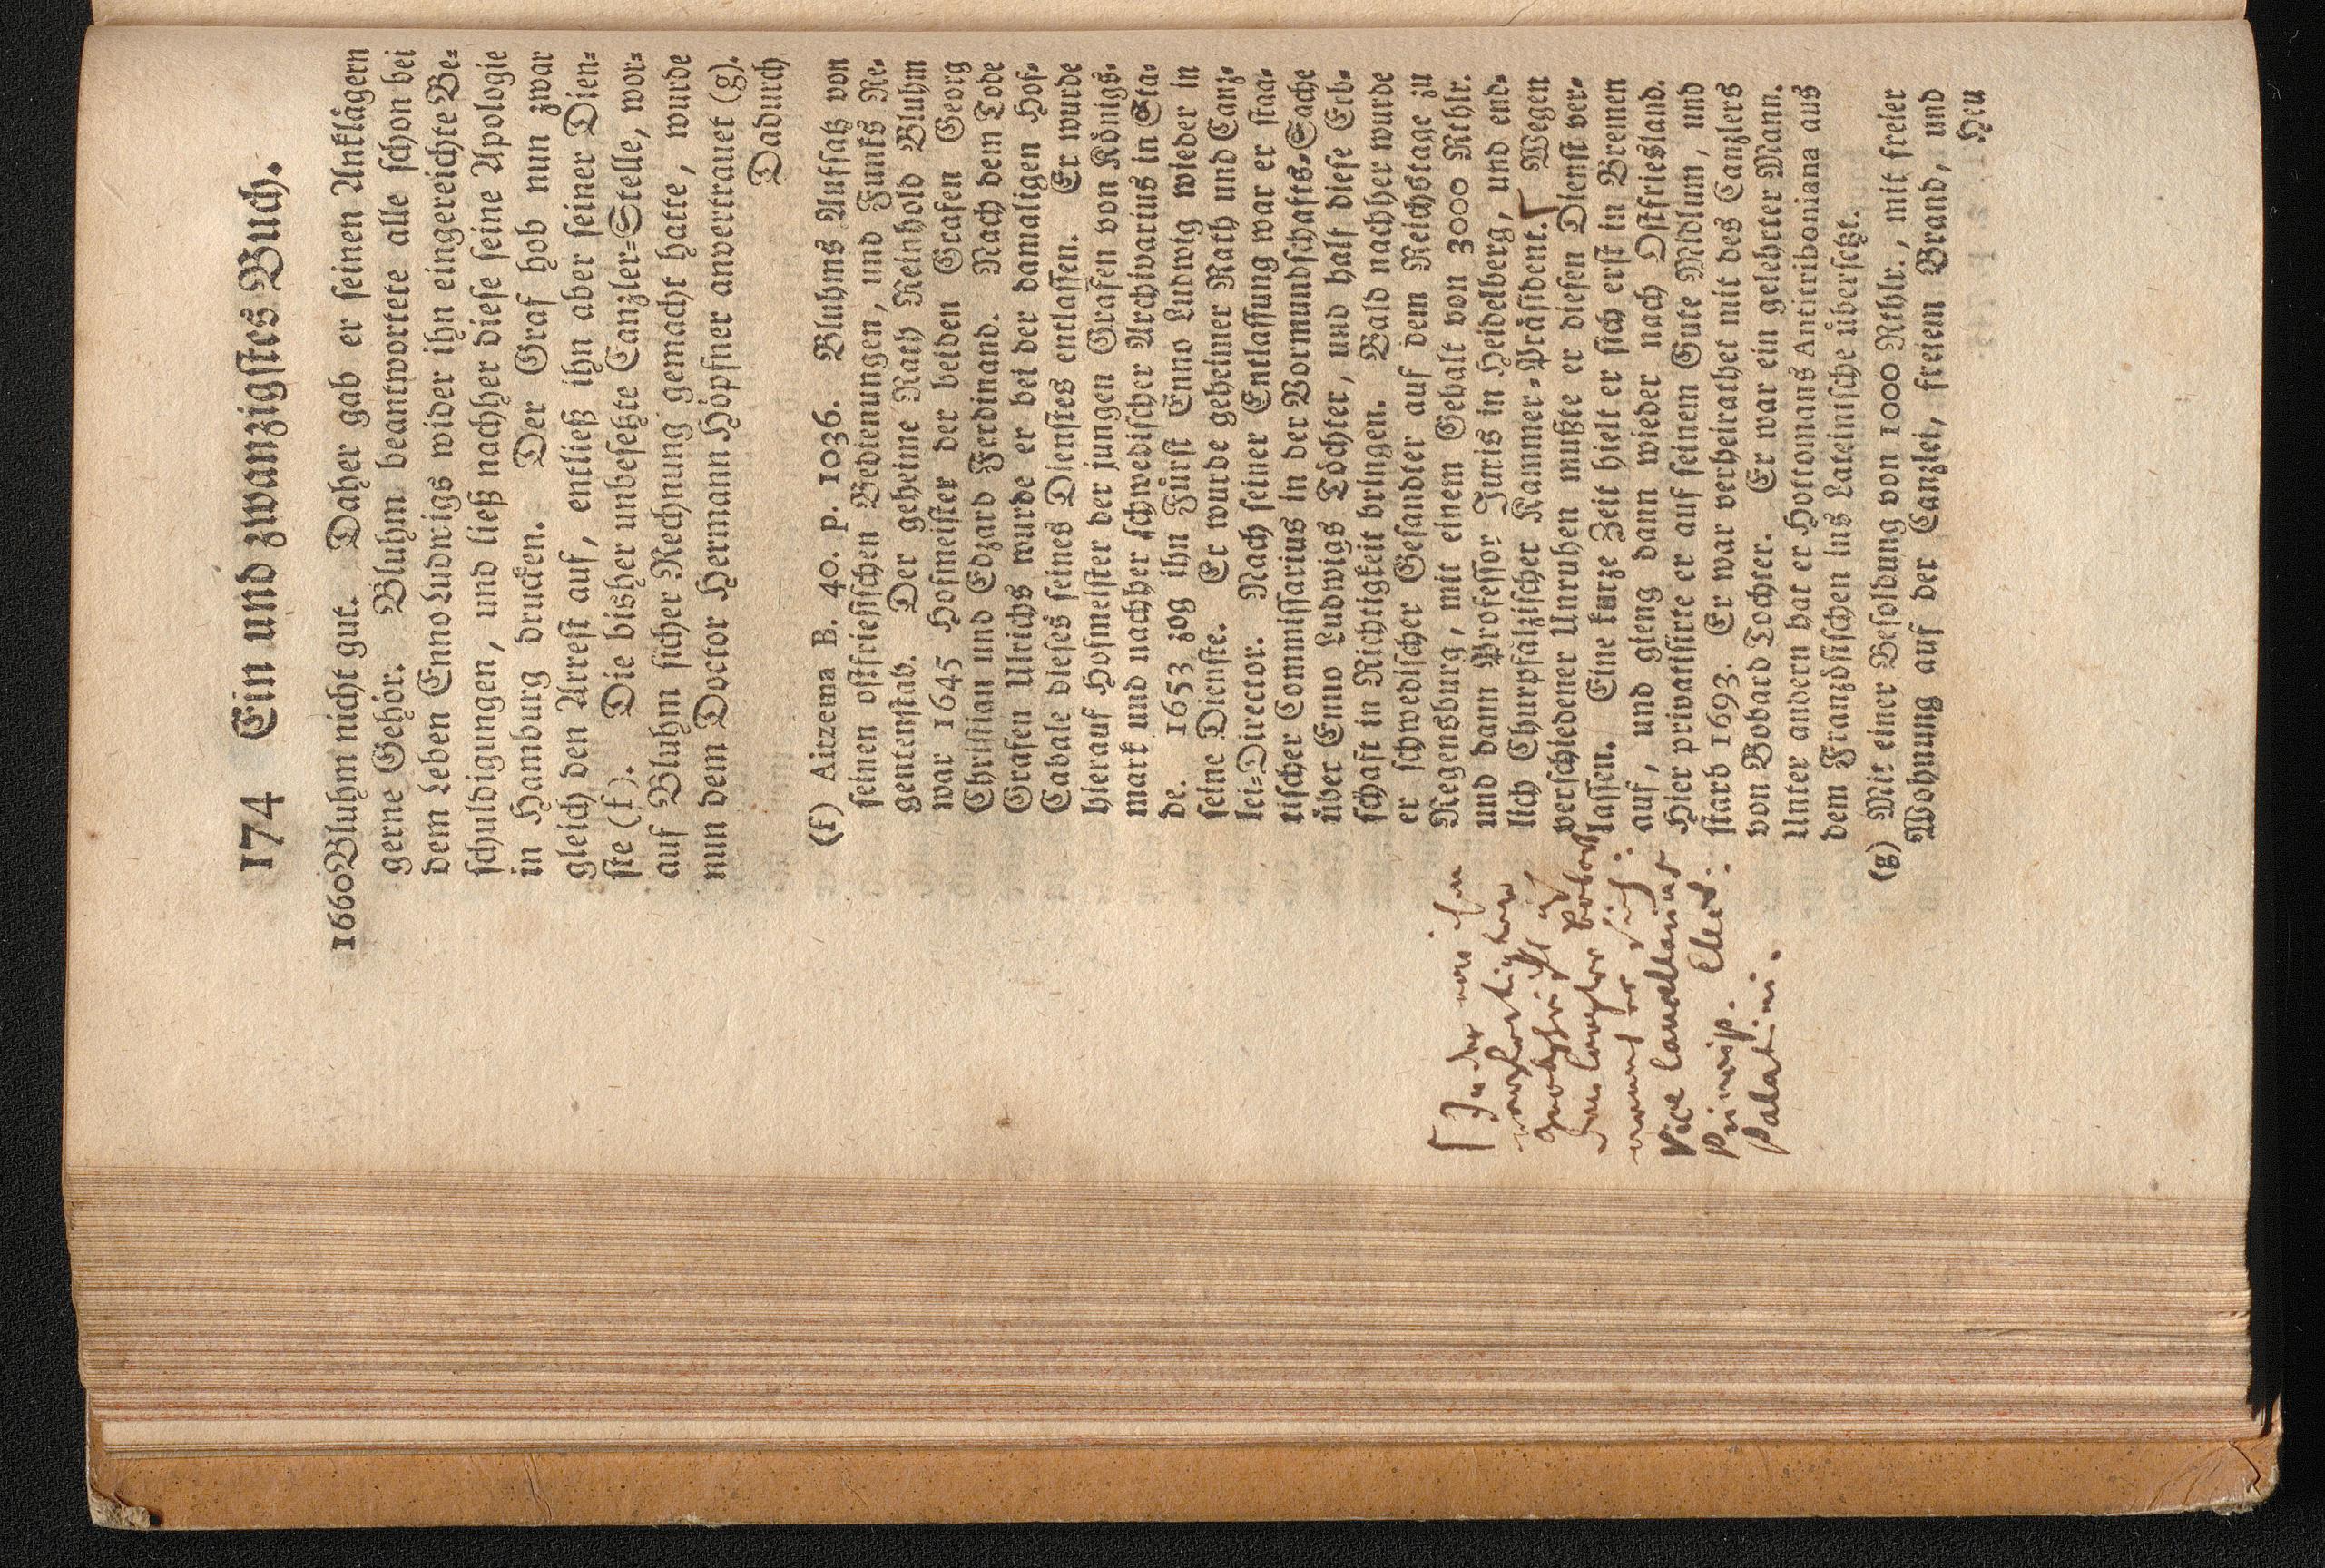 174 Ein und zwanzigstes Buch.
1660 Bluhm nicht gut. Daher gab er seinen Anklägern
gerne Gehör. Bluhm beantwortete alle schon bei
dem Leben Enno Ludwigs wider ihn eingereichte Be-
schuldigungen, und ließ nachher diese seine Apologie
in Hamburg drucken. Der Graf hob nun zwar
gleich den Arrest auf, entließ ihn aber seiner Dien-
ste (f). Die bisher unbesetzte Canzler-Stelle, wor-
auf Bluhm sicher Rechnung gemacht hatte, wurde
nun dem Doctor Hermann Höpfner anvertrauet (g).
Dadurch
(f) Aitzema B. 40. p. 1036. Bluhms Aufsatz von
seinen ostfriesischen Bedienungen, und Funks Re-
gentenstab. Der geheime Rath Reinhold Bluhm
war 1645 Hofmeister der beiden Grafen Georg
Christian und Edzard Ferdinand. Nach dem Tode
Grafen Ulrichs wurde er bei der damaligen Hof-
Cabale dieses seines Dienstes entlassen. Er wurde
hierauf Hofmeister der jungen Grafen von Königs-
mark und nachher schwedischer Archivarius in Sta-
de. 1653 zog ihn Fürst Enno Ludwig wieder in
seine Dienste. Er wurde geheimer Rath und Canz-
lei-Director. Nach seiner Entlassung war er staa-
tischer Commissarius in der Vormundschafts-Sache
über Enno Ludwigs Töchter, und half diese Erb-
schaft in Richtigkeit bringen. Bald nachher wurde
er schwedischer Gesandter auf dem Reichstage zu
Regensburg, mit einem Gehalt von 3000 Rthlr.
und dann Professor Juris in Heidelberg, und end-
lich Churpfälzischer Kammer-Präsident. Wegen
verschiedener Unruhen mußte er diesen Dienst ver-
lassen. Eine kurze Zeit hielt er sich erst in Bremen
auf, und gieng dann wieder nach Ostfriesland.
Hier privatisirte er auf seinem Gute Midlum, und
starb 1693. Er war verheirathet mit des Canzlers
von Bobard Tochter. Er war ein gelehrter Mann.
Unter andern hat er Hottomans Antitriboniana aus
dem Französischen ins Lateinische übersetzt.
(g) Mit einer Besoldung von 1000 Rthlr., mit freier
Wohnung auf der Canzlei, freiem Brand, und
Hu
In der von
Vice Cancellarius
Princip. Elect.
Palatini.